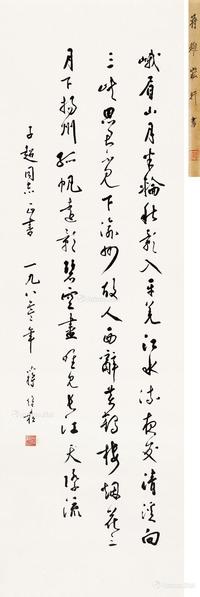 蔣維崧行書
峨眉山月半輪秋影入平羌江水流夜發清溪向
三峽思君不見下渝州故人西辭黃鶴樓烟花三
月下揚州孤帆遠影碧空盡唯見長江天際流
子超同志正書 一九八三年 蔣維崧